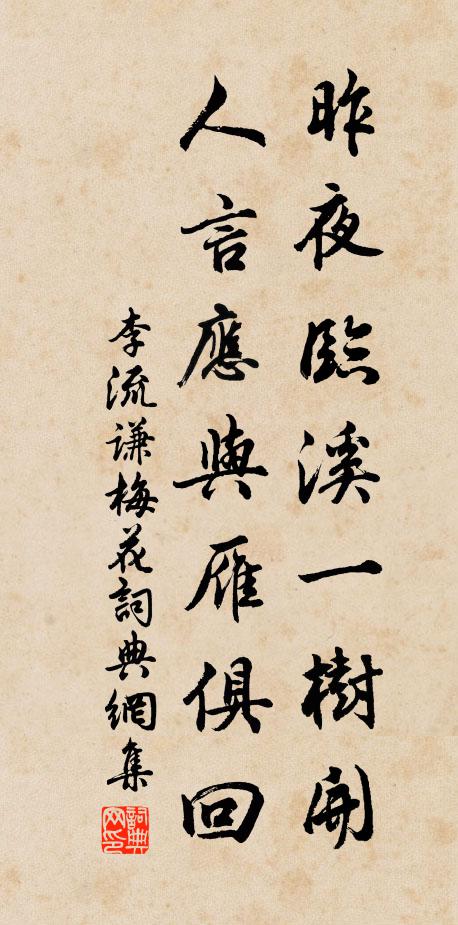 昨夜臨溪一樹開
人言應與雁俱回
李流謙梅花詞典網集
詞典网印